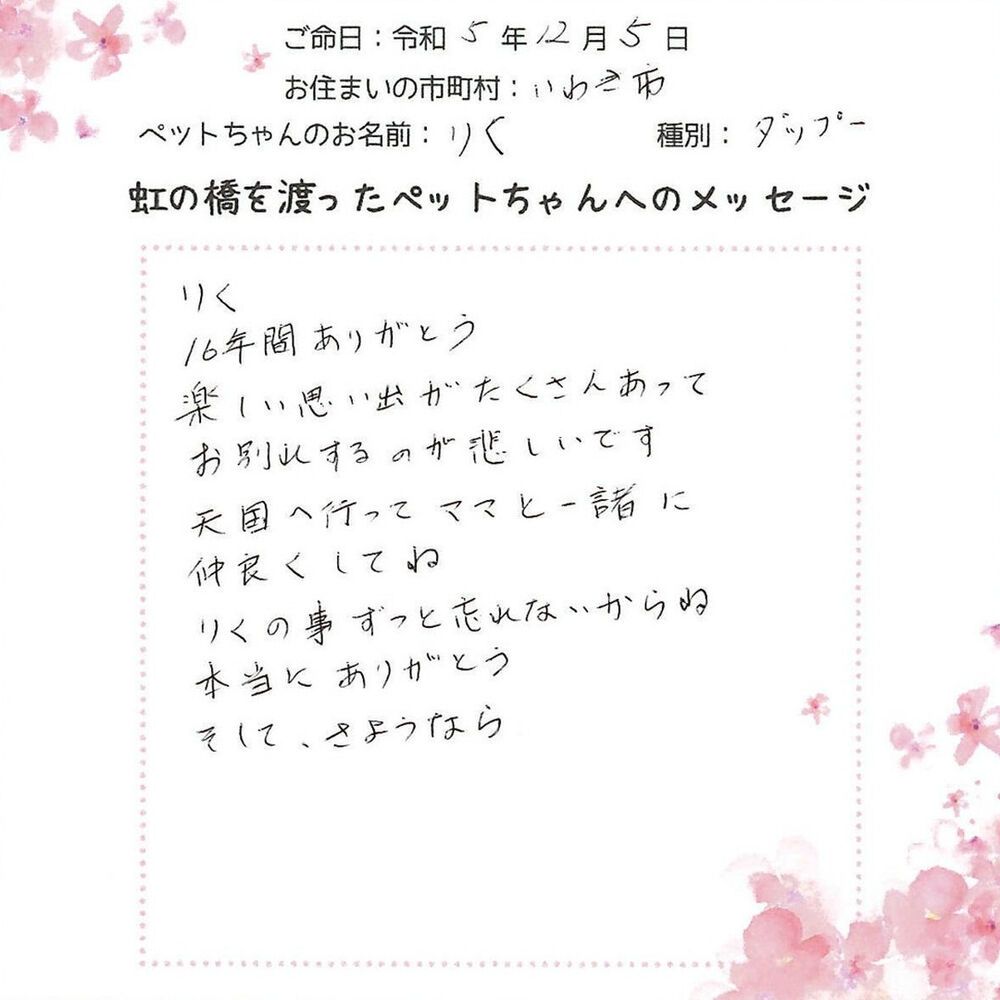 ご命日：令和 5 年 12 月 5 日
お住まいの市町村：いわき市
ペットちゃんのお名前：りく 種別：ダップー
虹の橋を渡ったペットちゃんへのメッセージ
りく
16年間ありがとう
楽しい思い出がたくさんあって
お別れするのが悲しいです
天国へ行ってママと一諸に
仲良くしてね
りくの事ずっと忘れないからね
本当にありがとう
そして、さようなら